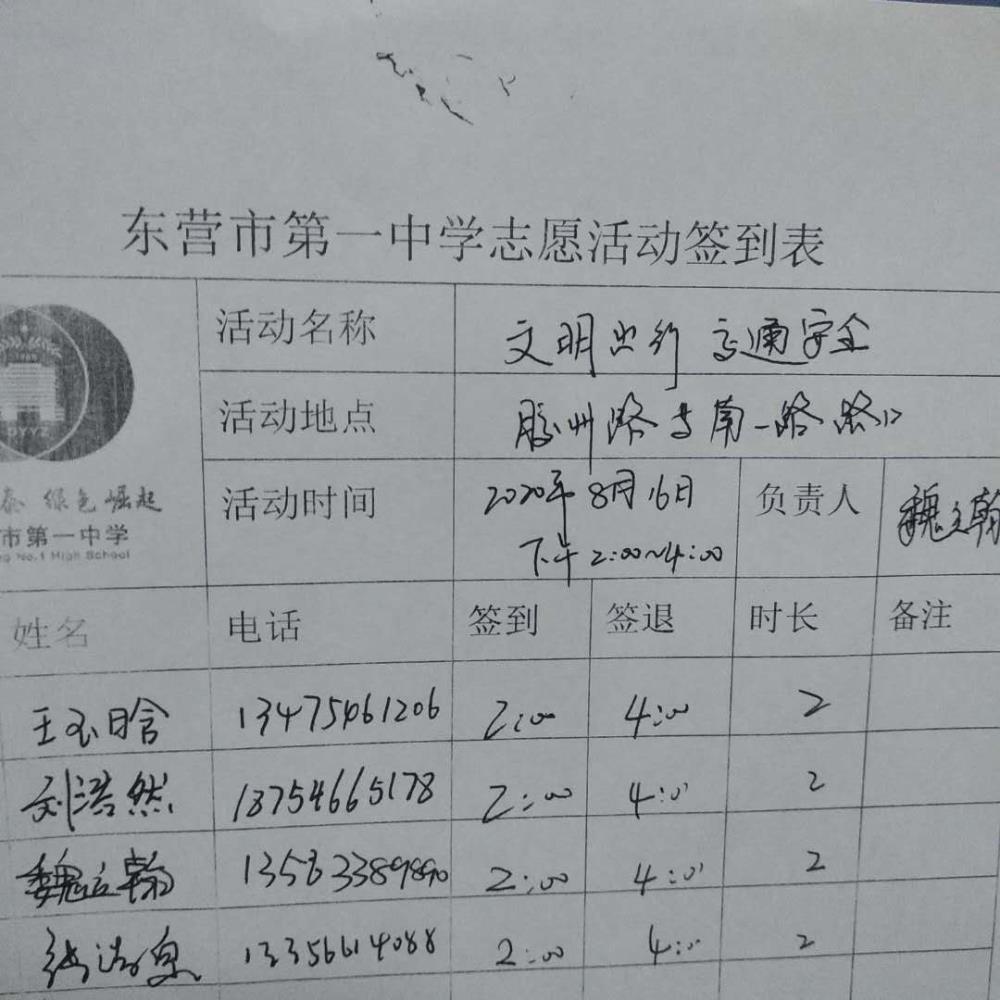 东营市第一中学志愿活动签到表
活动名称 文明出行 交通安全
活动地点 胶州路与南一路路口
活动时间 2020年8月16日 负责人 魏立翰
下午 2:00~4:00
绿色崛起
市第一中学
No.1 High School
姓名 电话 签到 签退 时长 备注
王玉晗 13475461206 2:00 4:00 2
刘浩然 18754665178 2:00 4:00 2
魏立翰 2:00 4:00 2
13356614088 2:00 4:00 2